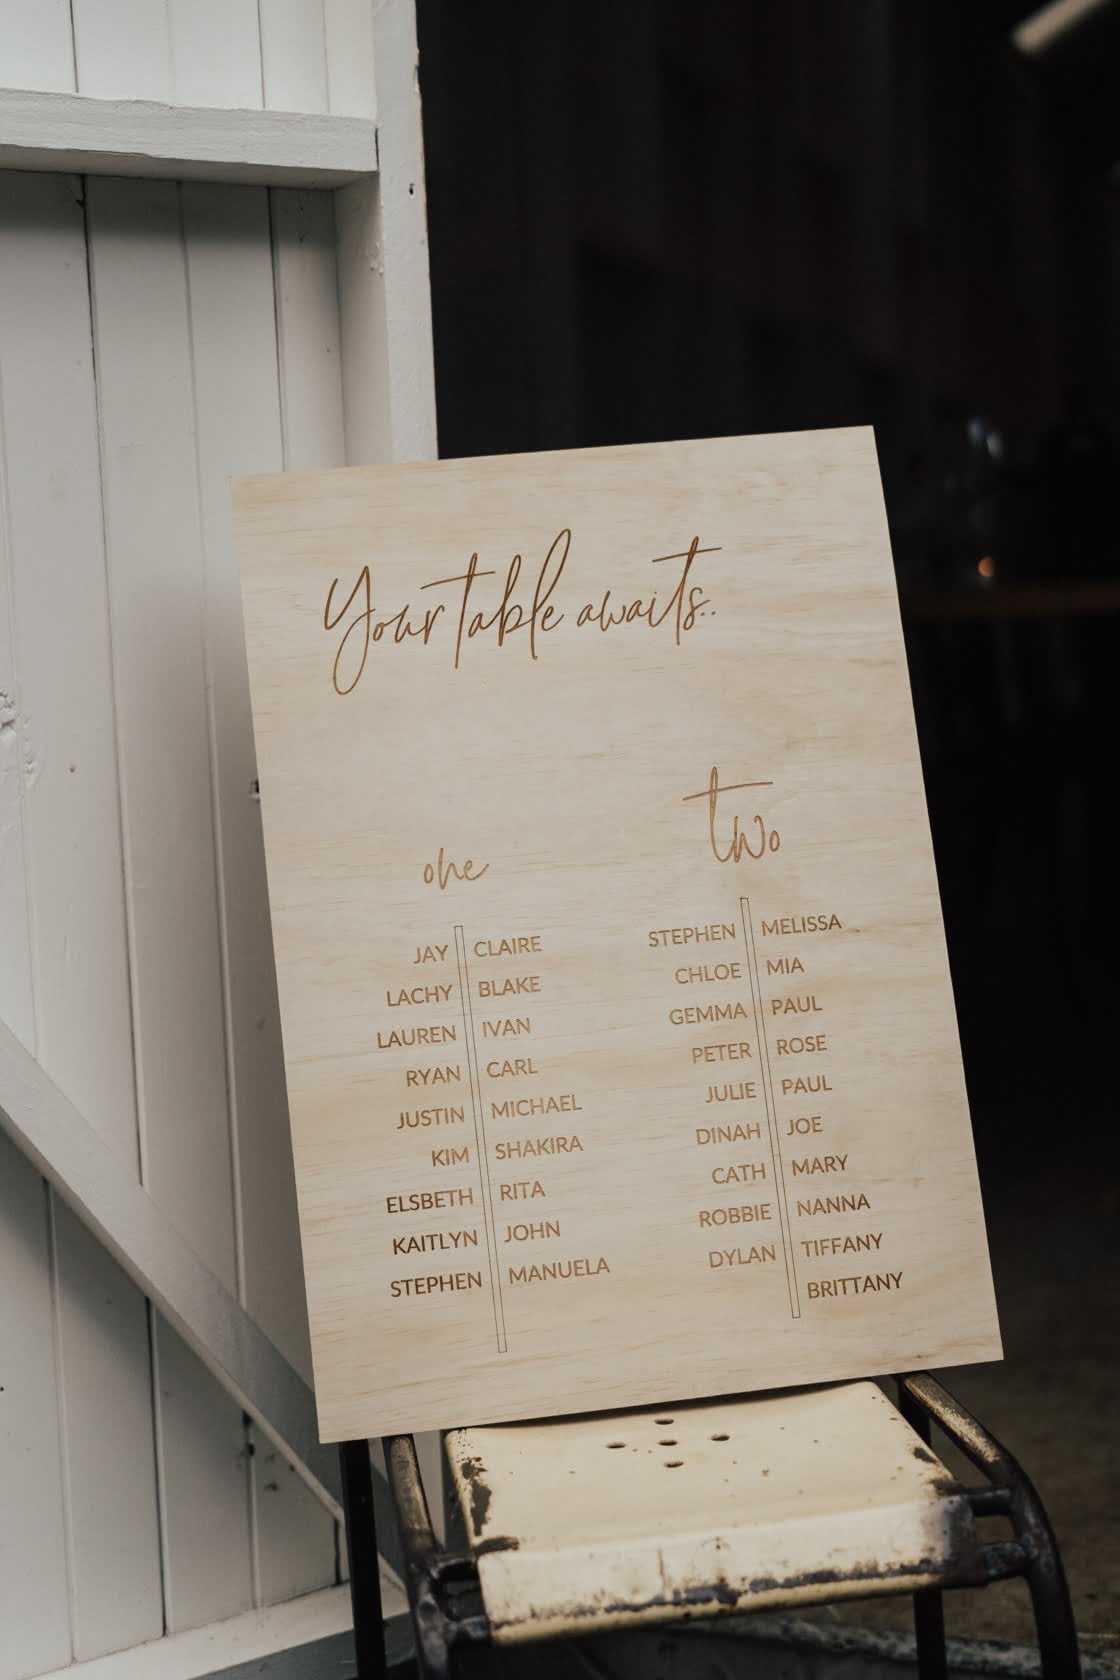 Your table awaits..
one
JAY CLAIRE
LACHY BLAKE
LAUREN IVAN
RYAN CARL
JUSTIN MICHAEL
KIM SHAKIRA
ELSBETH RITA
KAITLYN JOHN
STEPHEN MANUELA
two
STEPHEN MELISSA
CHLOE MIA
GEMMA PAUL
PETER ROSE
JULIE PAUL
DINAH JOE
CATH MARY
ROBBIE NANNA
DYLAN TIFFANY
BRITTANY